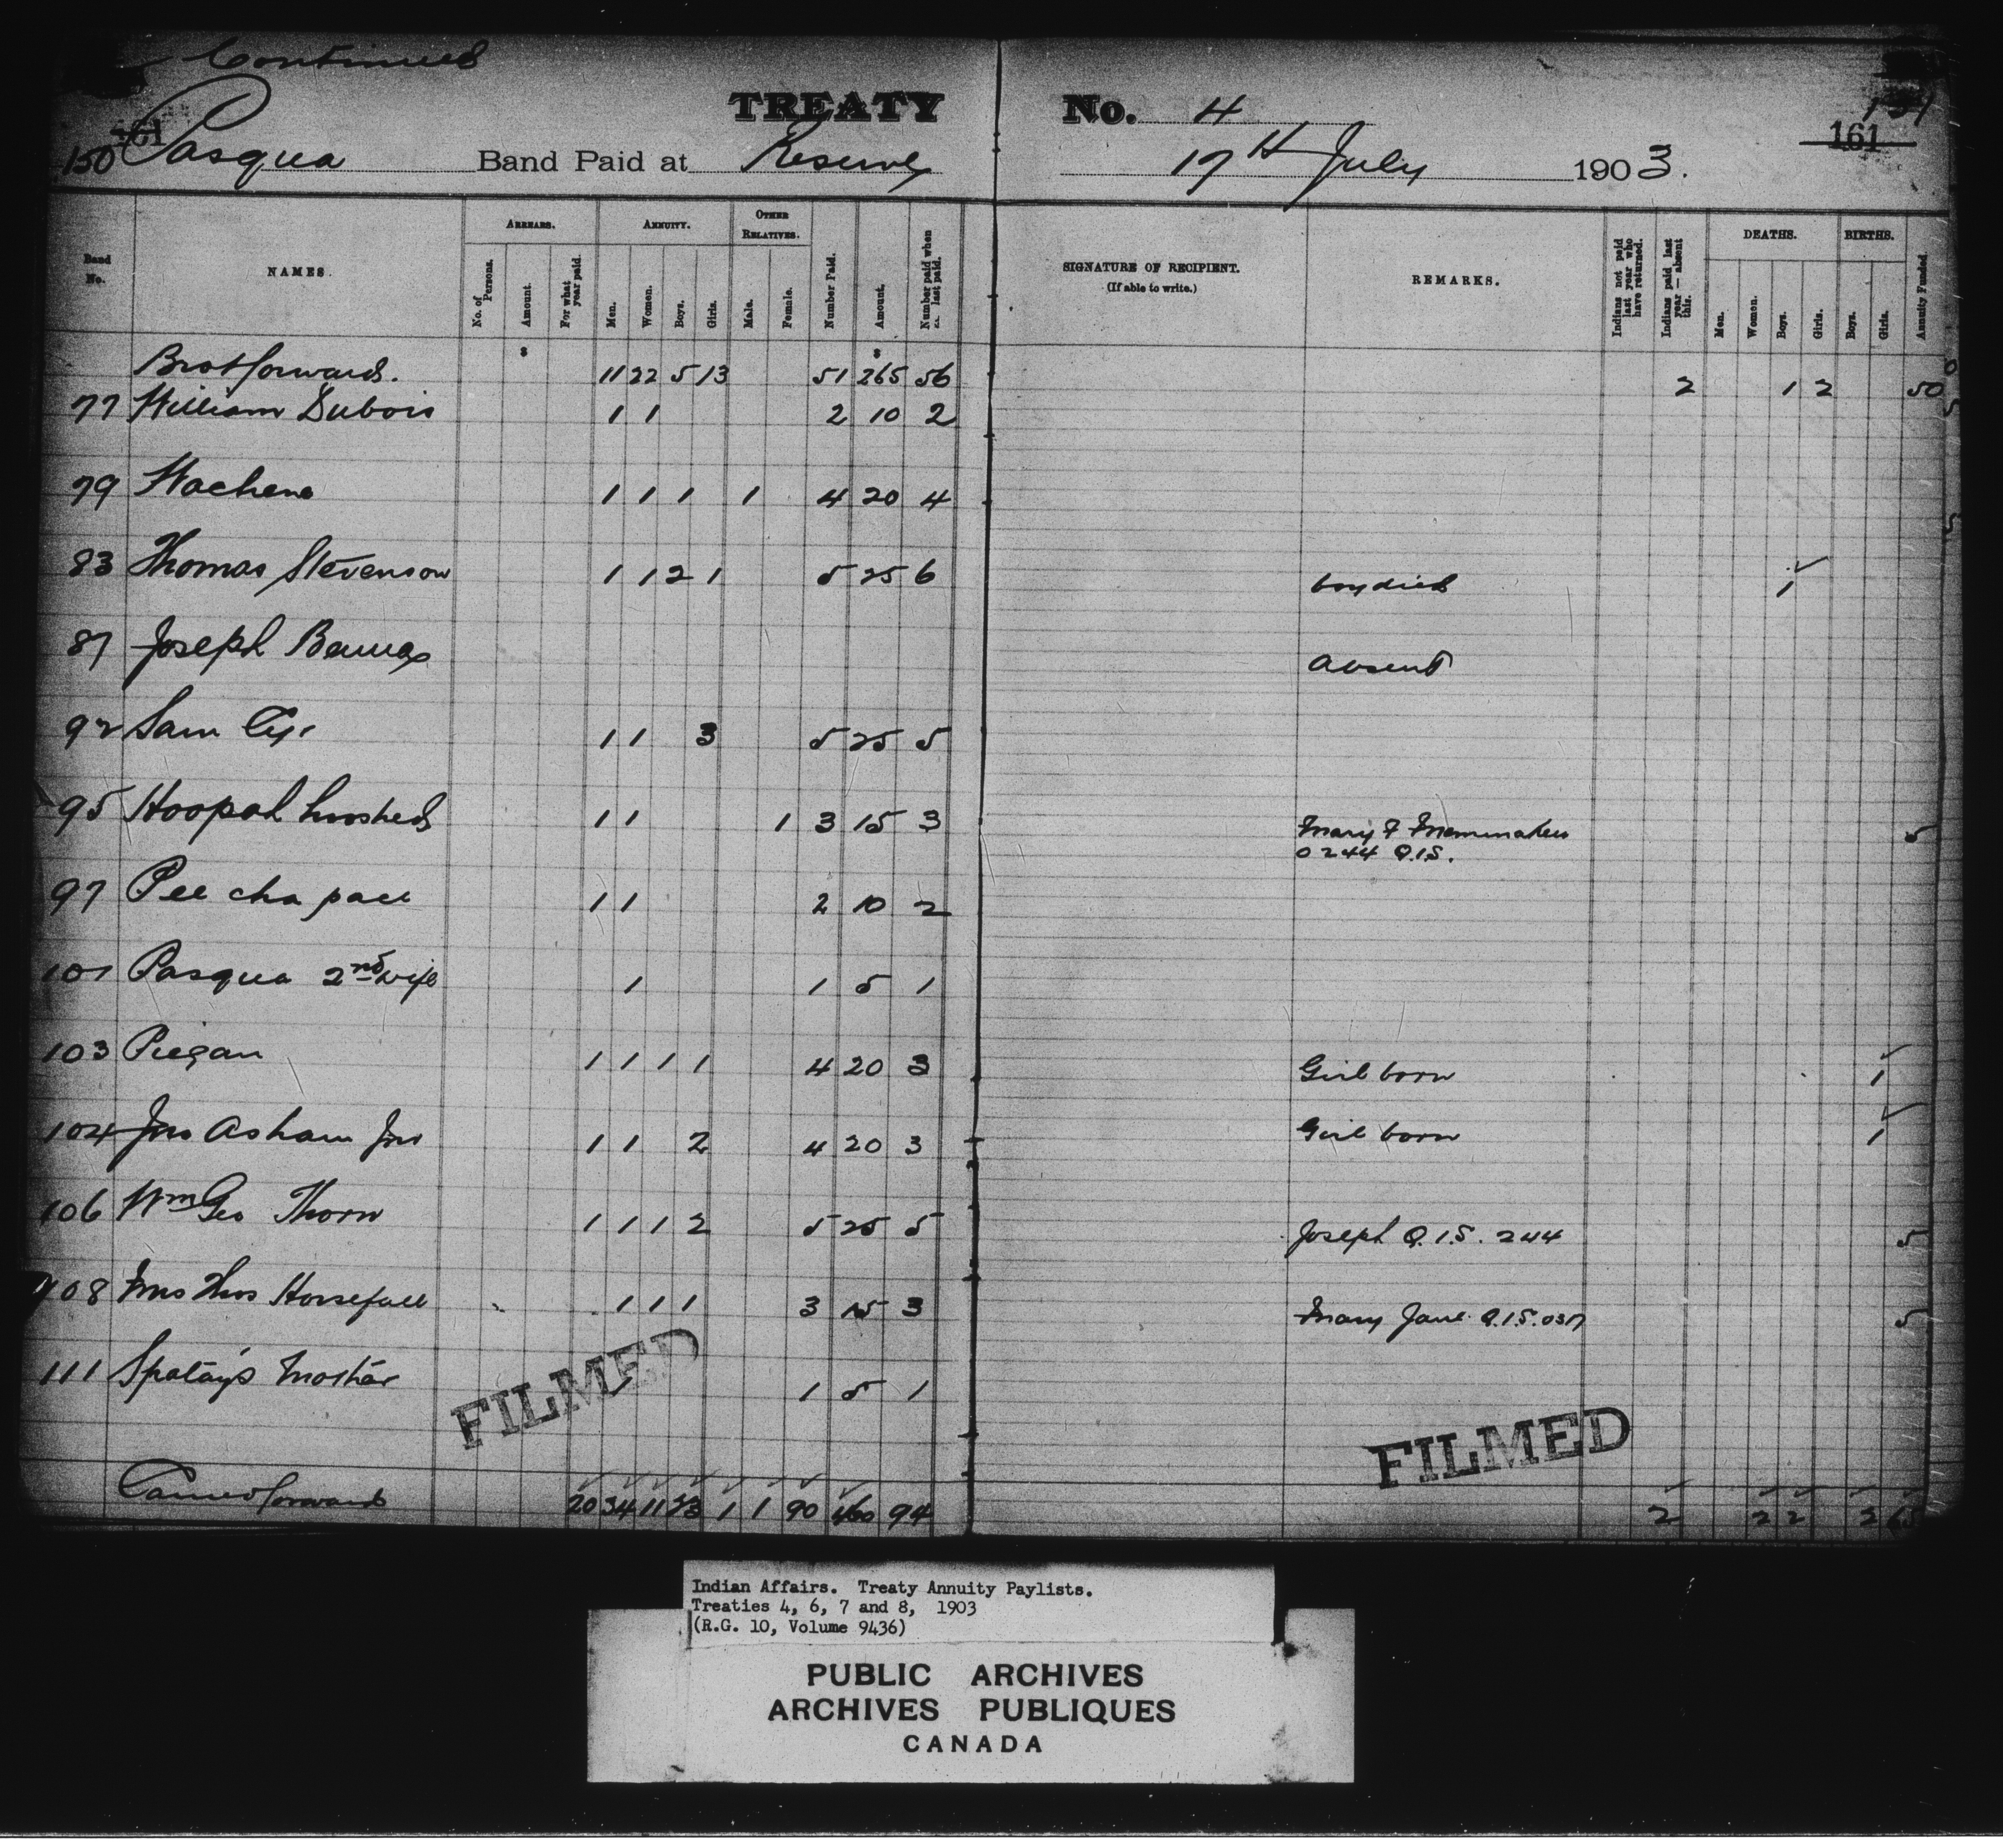 Continued
TREATY No. 4
150 161 Pasqua Band Paid at Reserve 17th July 1903. 161
Band No. NAMES. ARREARS. ANNUITY. OTHER RELATIVES. Number Paid. Amount. Number paid when last paid. SIGNATURE OF RECIPIENT. (If able to write.) REMARKS. Indians not paid last year who have returned. Indians paid last year — absent this. DEATHS. BIRTHS. Annuity Funded
No. of Persons. Amount. For what year paid. Men. Women. Boys. Girls. Male. Female. Men. Women. Boys. Girls. Boys. Girls.
Brot forward. 11 22 5 13 51 265 56 2 1 2 50
77 William Dubois 1 1 2 10 2
79 Wachena 1 1 1 1 4 20 4
83 Thomas Stevenson 1 1 2 1 5 25 6 boy died 1
87 Joseph absent
92 Sam Cyr 1 1 3 5 25 5
95 Hoopah 1 1 1 3 15 3 Mary F 5
0244 Q.I.S.
97 Pee cha pace 1 1 2 10 2
101 Pasqua 2nd wife 1 1 5 1
103 Piegan 1 1 1 1 4 20 3 Girl born 1
104 Jno Asham Jnr 1 1 2 4 20 3 Girl born 1
106 Wm Geo Thorn 1 1 1 2 5 25 5 Joseph Q.I.S. 244 5
108 Mrs Thos Horsefall 1 1 1 3 15 3 Mary Jane Q.I.S. 037 5
111 Spotay's Mother 1 1 5 1
FILMED
FILMED
Carried forward 20 34 11 23 1 1 90 460 94 2 2 2 2 65
Indian Affairs. Treaty Annuity Paylists.
Treaties 4, 6, 7 and 8, 1903
(R.G. 10, Volume 9436)
PUBLIC ARCHIVES
ARCHIVES PUBLIQUES
CANADA